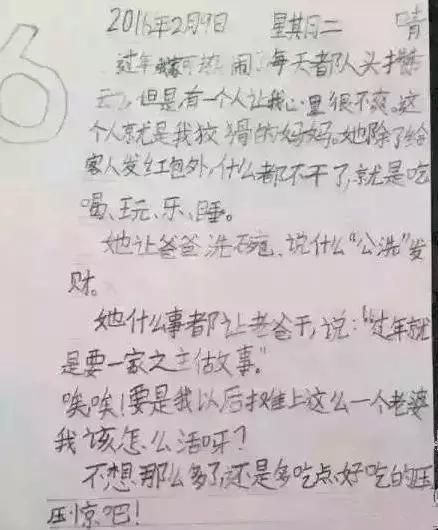 2016年2月9日 星期二 晴
过年我家可热闹了,每天都人头攒
动,但是有一个人让我心里很不爽。这
个人就是我狡猾的妈妈。她除了给
客人发红包外,什么都不干了,就是吃
喝、玩、乐、睡。
她让爸爸洗碗,说什么“公洗”发
财。
她什么事都让老爸干,说:“过年就
是要一家之主做事。”
唉唉!要是我以后摊上这么一个老婆
我该怎么活呀?
不想那么多了,还是多吃点好吃的压
压惊吧!